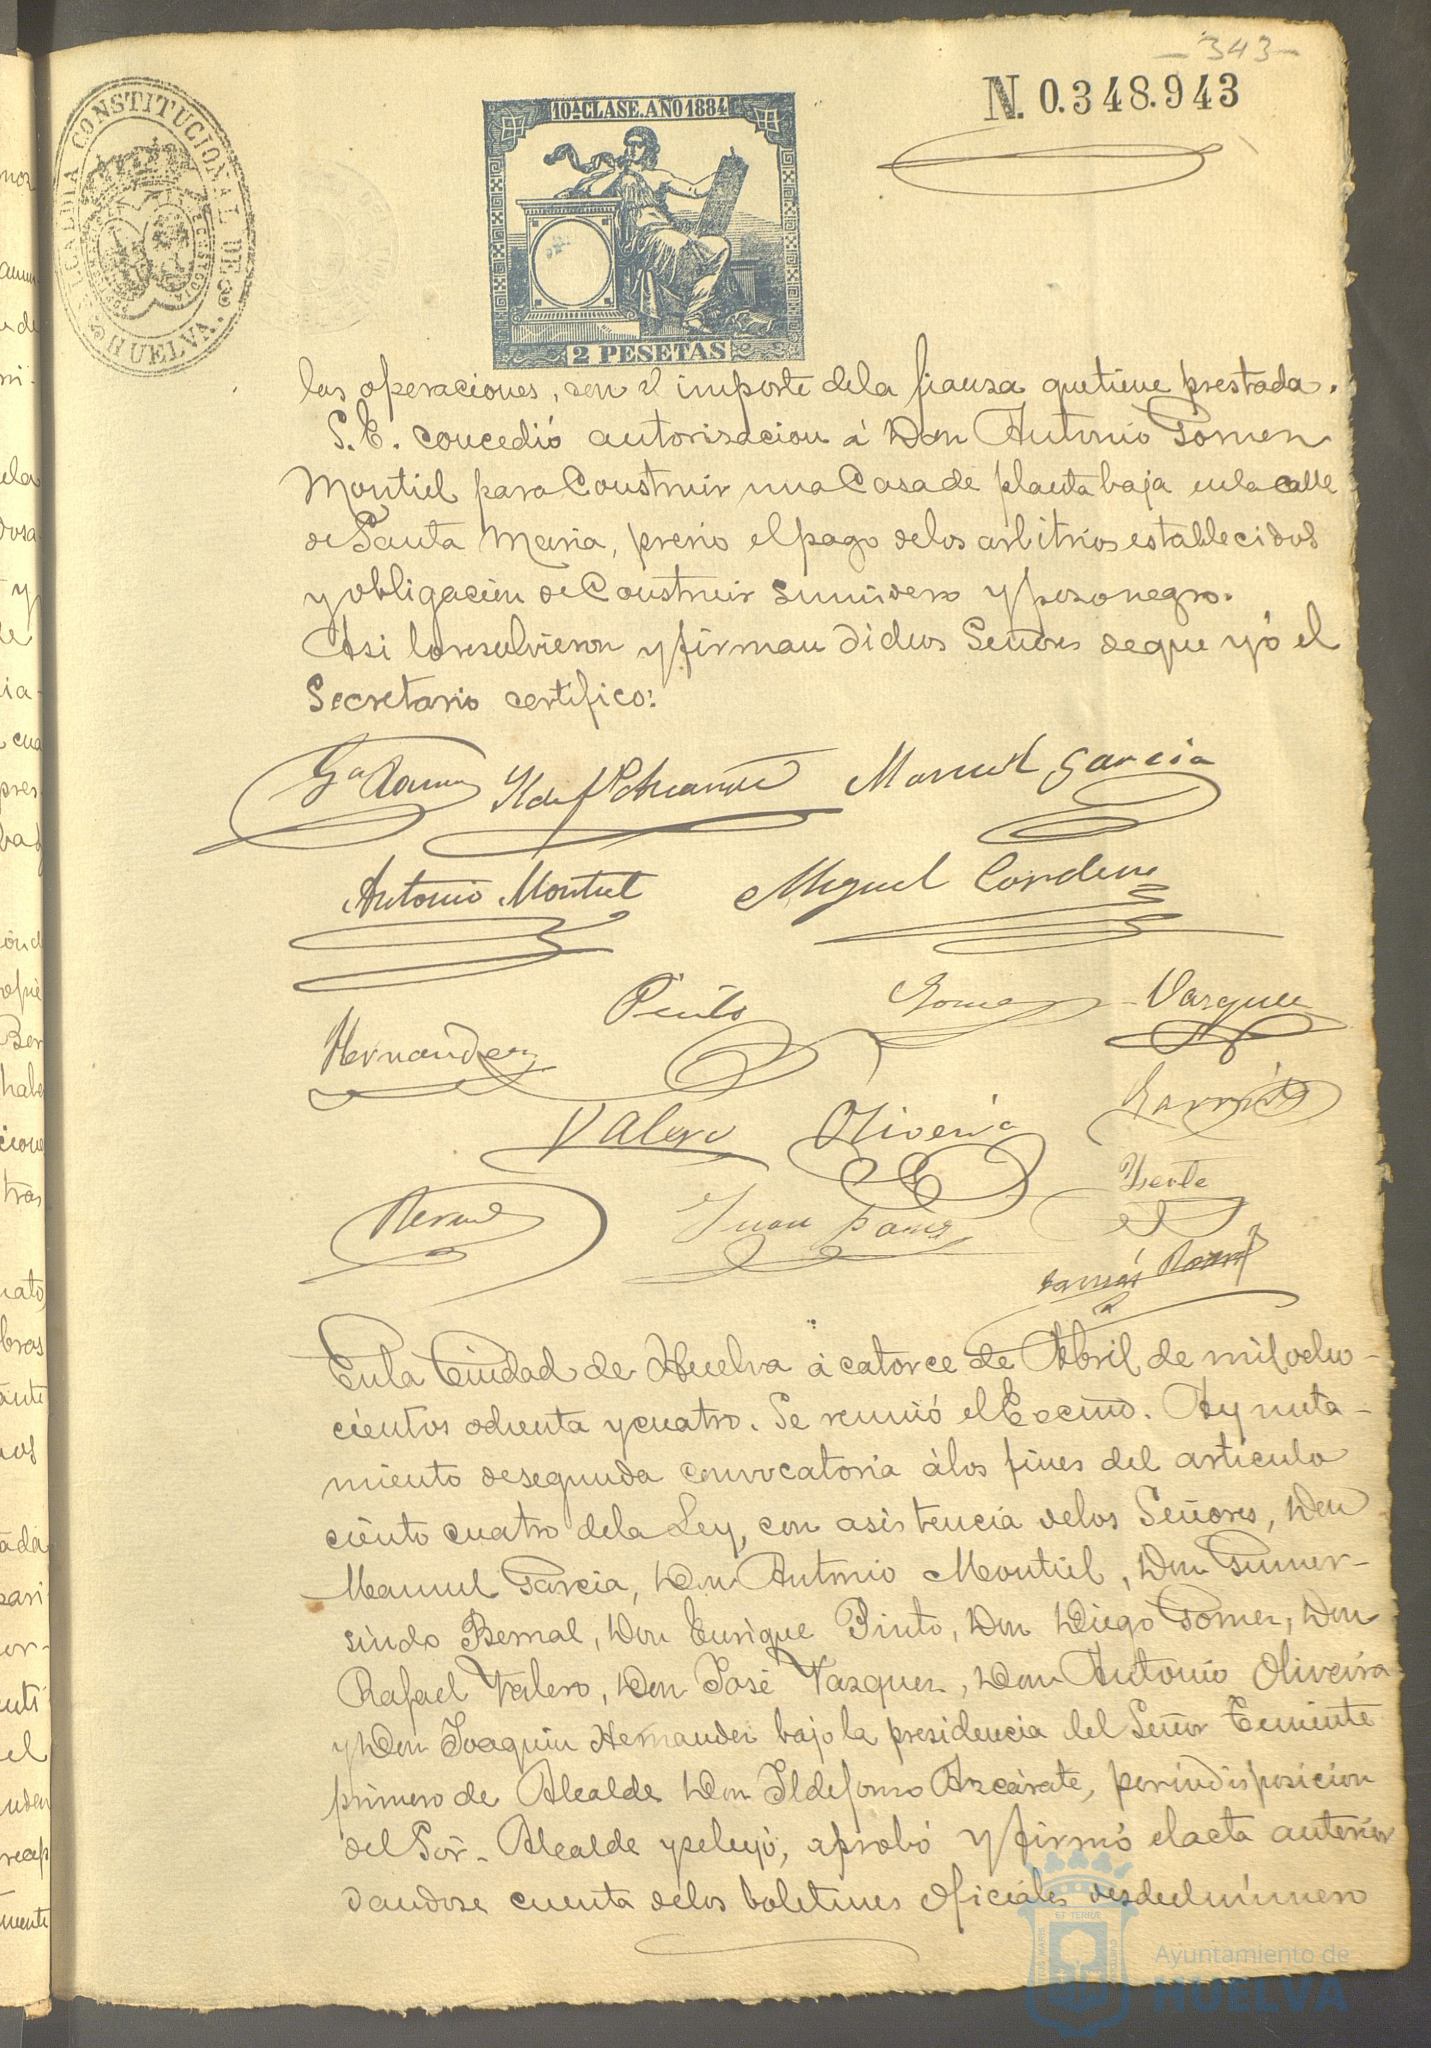 - 343 -
N. 0.348.943
ALCALDIA CONSTITUCIONAL DE HUELVA.
10ª CLASE. AÑO 1884
2 PESETAS
las operaciones, con el importe dela fianza quetiene prestada.
S. E. concedió autorizacion á Don Antonio Gomez
Montiel para Construir una Casa de planta baja enla calle
de Santa Maria, previo el pago delos arbitrios establecidos
y obligacion de Construir sumidero y pozo negro.
Asi loresolvieron y firman dichos Señores deque yó el
Secretario certifico:
Manuel Garcia
Antonio Montiel
Miguel Cordero
Pinto
Gomez
Vazquez
Hernandez
Valero
Oliveira
Garrido
Bernal
Juan
Enla Ciudad de Huelva á catorce de Abril de mil ocho-
cientos ochenta y cuatro. Se reunió el Excmo. Ayunta-
miento desegunda convocatoria álos fines del articulo
ciento cuatro dela Ley, con asistencia delos Señores, Don
Manuel Garcia, Don Antonio Montiel, Don Gumer-
sindo Bernal, Don Enrique Pinto, Don Diego Gomez, Don
Rafael Valero, Don José Vazquez, Don Antonio Oliveira
y Don Joaquin Hernandez bajo la presidencia del Señor Teniente
primero de Alcalde Don Ildefonso Azcárate, por indisposicion
del Sor. Alcalde y se leyó, aprobó y firmó el acta anterior
dandose cuenta delos boletines oficiales desde el número
Ayuntamiento de
HUELVA